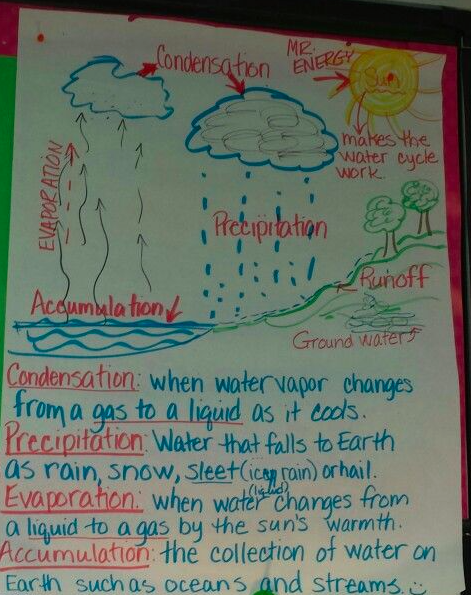 Condensation
MR.
ENERGY
Sun
makes the
water cycle
work.
EVAPORATION
Precipitation
Runoff
Accumulation
Ground water
Condensation: when water vapor changes
from a gas to a liquid as it cools.
Precipitation: Water that falls to Earth
as rain, snow, sleet (icey rain) or hail.
Evaporation: when water (liquid) changes from
a liquid to a gas by the sun's warmth.
Accumulation: the collection of water on
Earth such as oceans and streams.